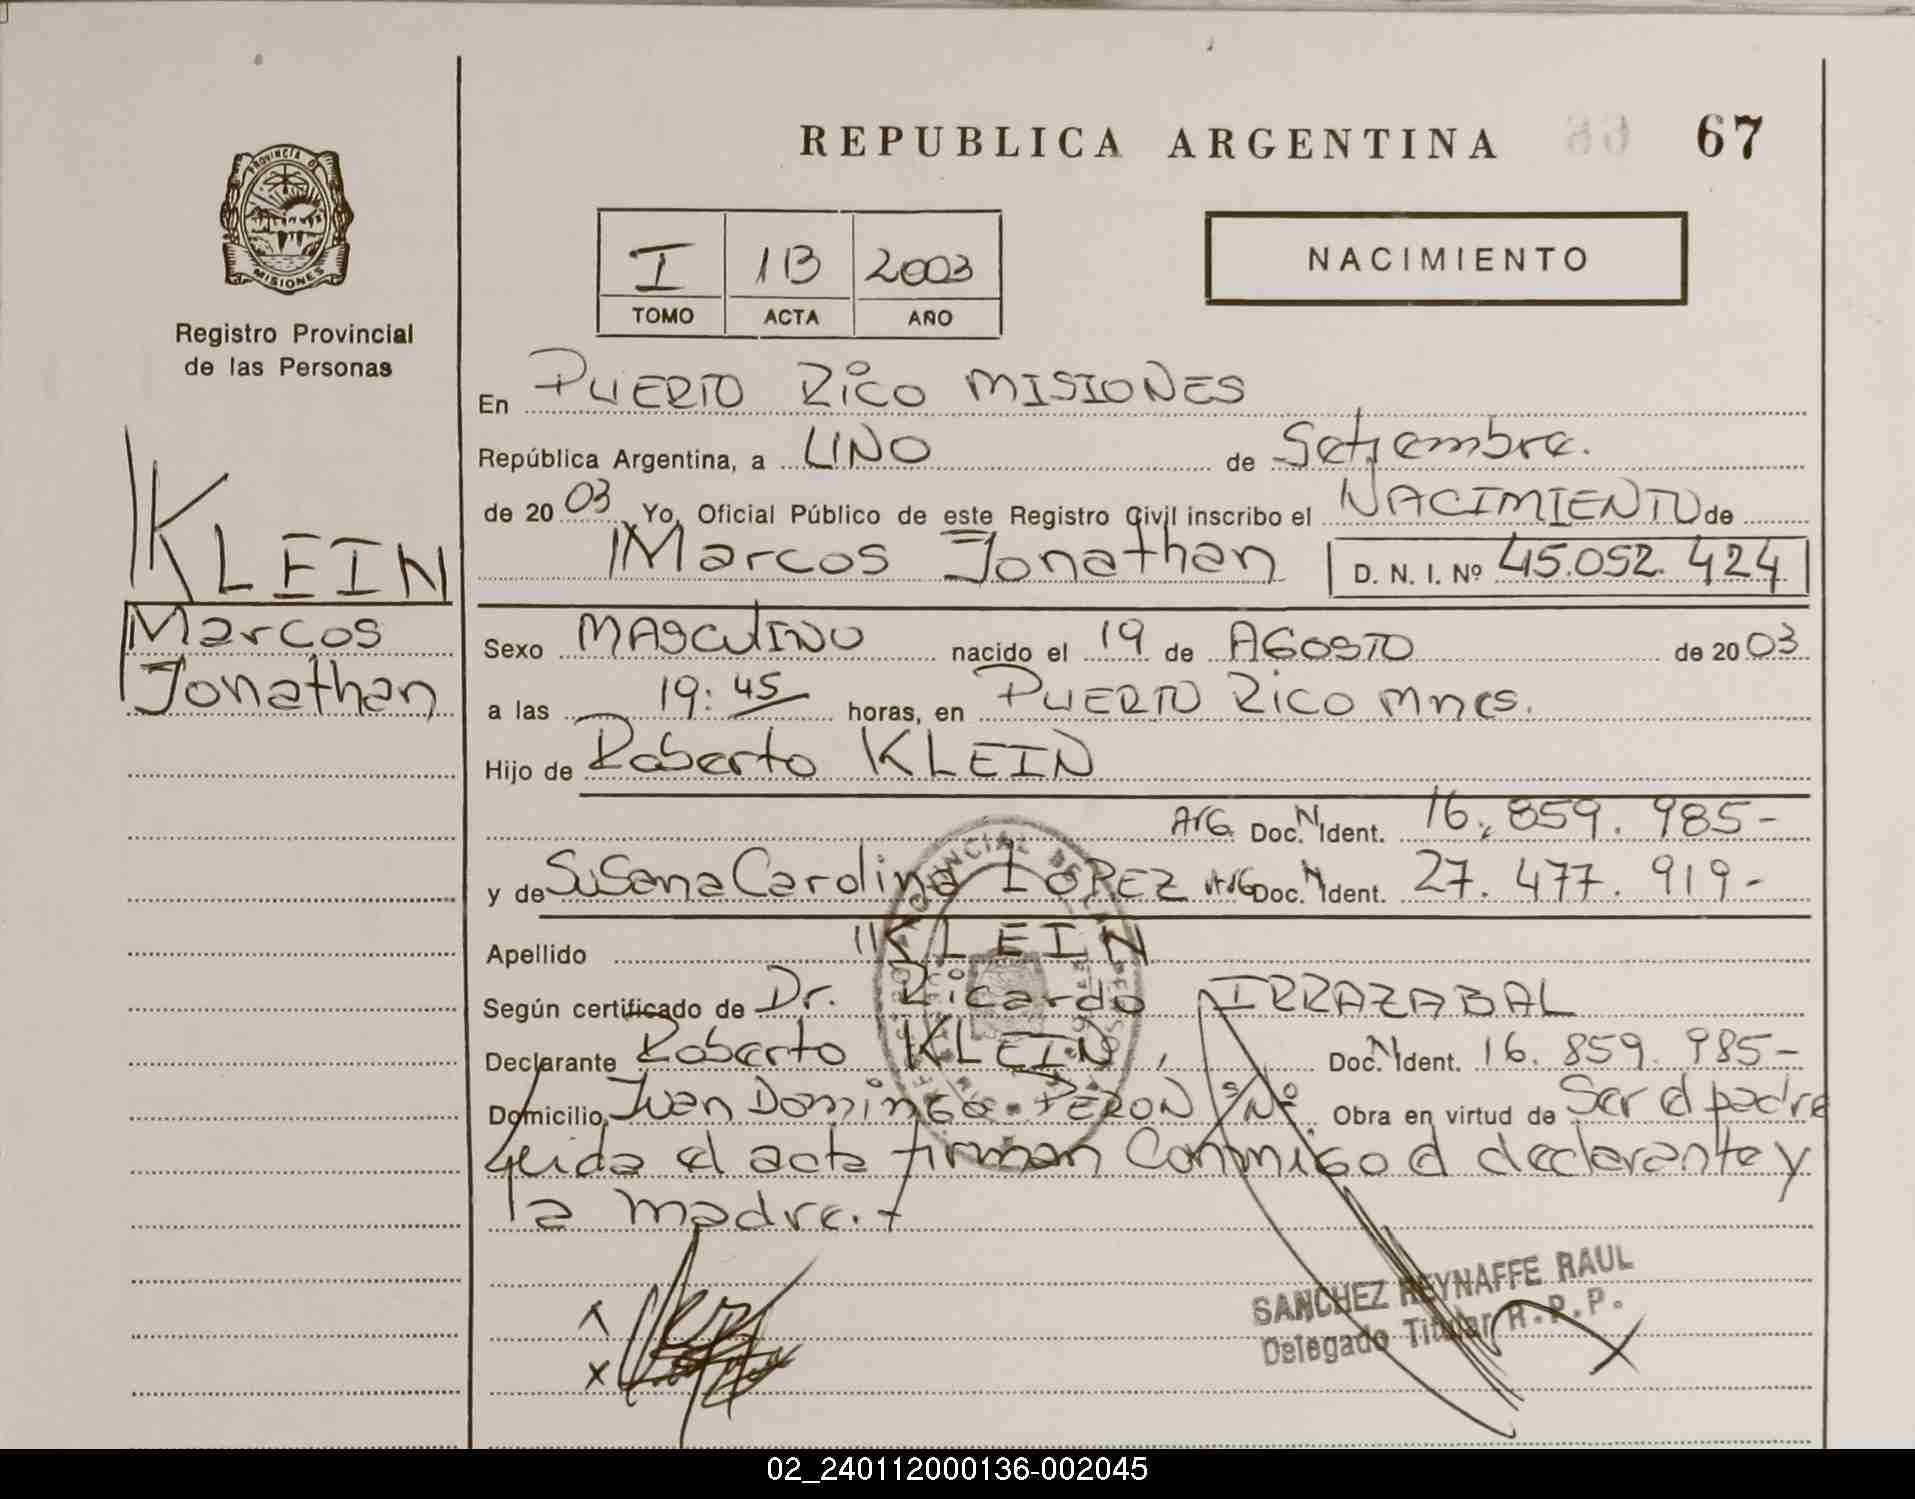 REPUBLICA ARGENTINA 66 67
PROVINCIA DE
MISIONES
Registro Provincial
de las Personas
I 1B 2003
TOMO ACTA AÑO
NACIMIENTO
KLEIN
Marcos
Jonathan
En PUERTO Rico MISIONES
República Argentina, a UNO de Setiembre.
de 2003 Yo, Oficial Público de este Registro Civil inscribo el NACIMIENTO de
Marcos Jonathan D. N. I. Nº 45.052.424
Sexo MASCULINO nacido el 19 de AGOSTO de 2003
a las 19:45 horas, en PUERTO RICO Mnes.
Hijo de Roberto KLEIN
Arg. Doc. N Ident. 16.859.985-
y de Susana Carolina LOPEZ Arg Doc. N Ident. 27.477.919-
Apellido "KLEIN
Según certificado de Dr. Ricardo IRRAZABAL
Declarante Roberto KLEIN, Doc. N Ident. 16.859.985-
Domicilio, Juan Domingo PERON S/Nº Obra en virtud de Ser el padre
Leida el acta firman Conmigo el declarante y
la madre.+
X
SANCHEZ REYNAFFE RAUL
Delegado Titular R.P.P.
02_240112000136-002045